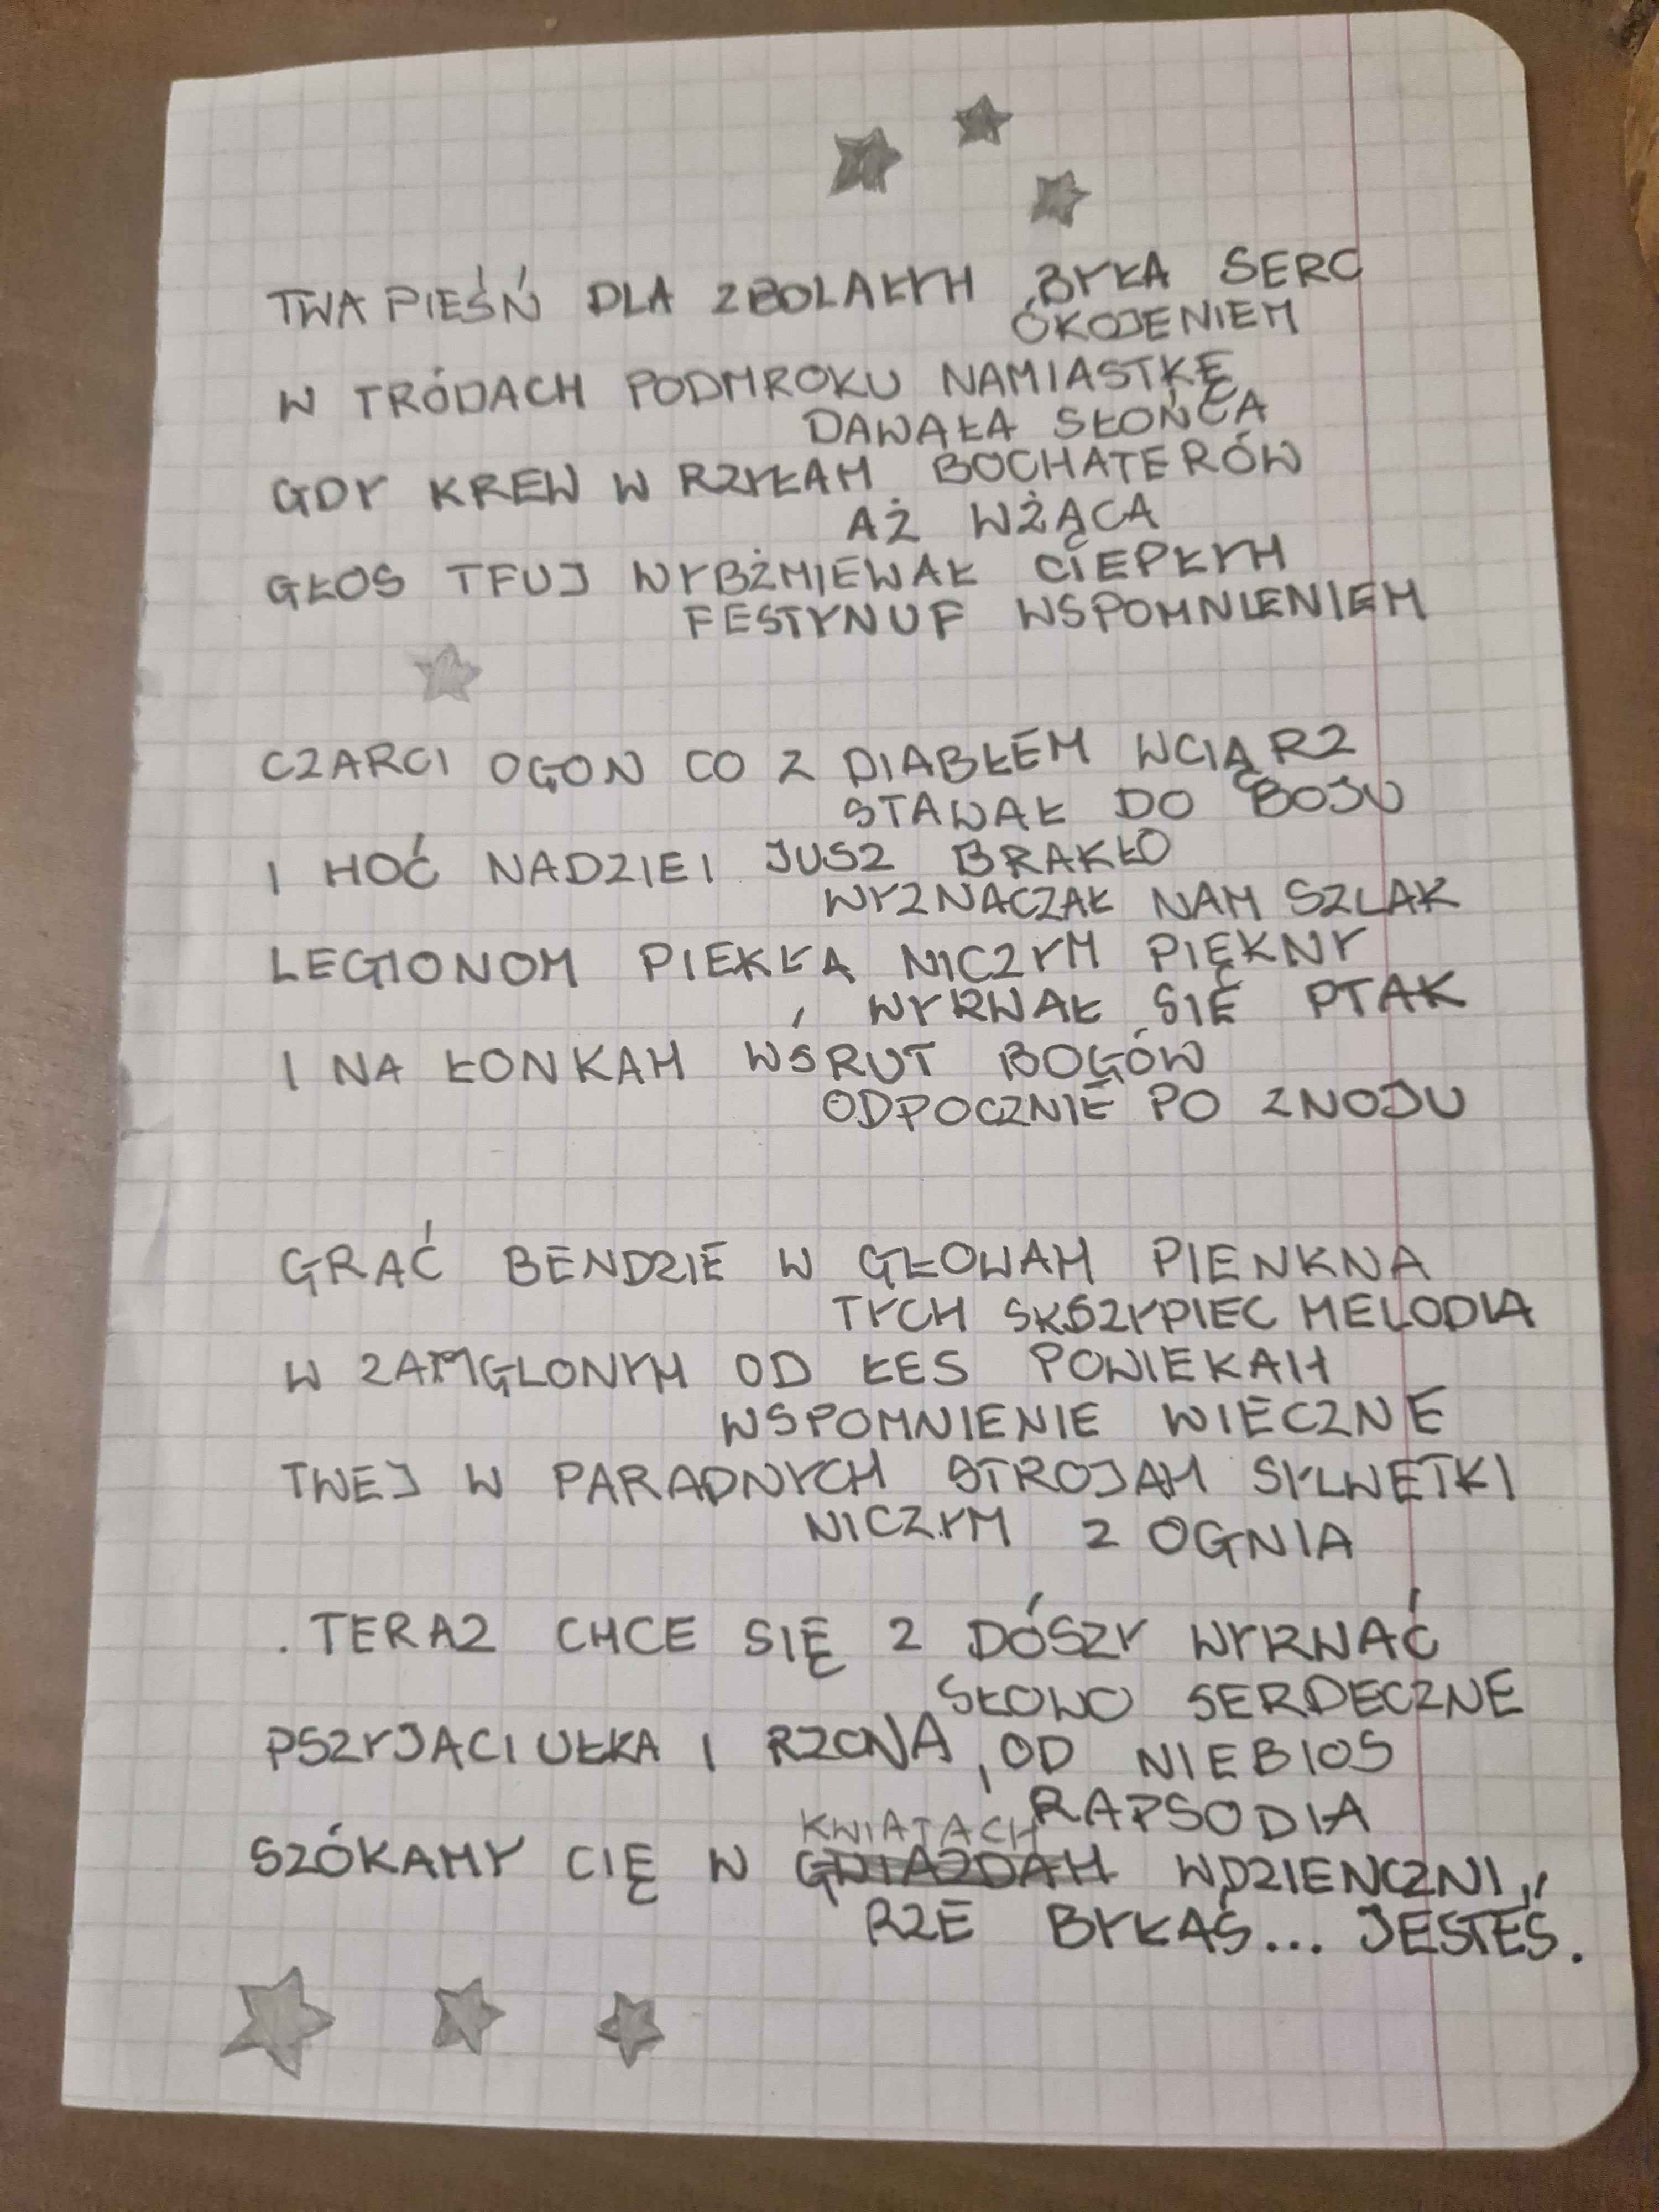 TWA PIEŚŃ DLA ZBOLAŁYH BYŁA SERC
ÓKOJENIEM
W TRÓDACH PODMROKU NAMIASTKĘ
DAWAŁA SŁOŃCA
GDY KREW W RZYŁAH BOCHATERÓW
AŻ WŻĄCA
GŁOS TFUJ WYBŻMIEWAŁ CIEPŁYH
FESTYNUF WSPOMNIENIEM
CZARCI OGON CO Z DIABŁEM WCIĄRZ
STAWAŁ DO BOJU
I HOĆ NADZIEI JUSZ BRAKŁO
WYZNACZAŁ NAM SZLAK
LEGIONOM PIEKŁA NICZYM PIĘKNY
WYRWAŁ SIĘ PTAK
I NA ŁONKAH WŚRUT BOGÓW
ODPOCZNIE PO ZNOJU
GRAĆ BENDZIE W GŁOWAH PIENKNA
TYCH SKSZYPIEC MELODIA
W ZAMGLONYH OD ŁES POWIEKAH
WSPOMNIENIE WIECZNE
TWEJ W PARADNYCH STROJAH SYLWETKI
NICZYM Z OGNIA
. TERAZ CHCE SIĘ Z DÓSZY WYRWAĆ
SŁOWO SERDECZNE
PSZYJACIUŁKA I RZONA, OD NIEBIOS
RAPSODIA
KWIATACH
SZÓKAMY CIĘ W GWIAZDAH WDZIENCZNI,
RZE BYŁAŚ... JESTEŚ.